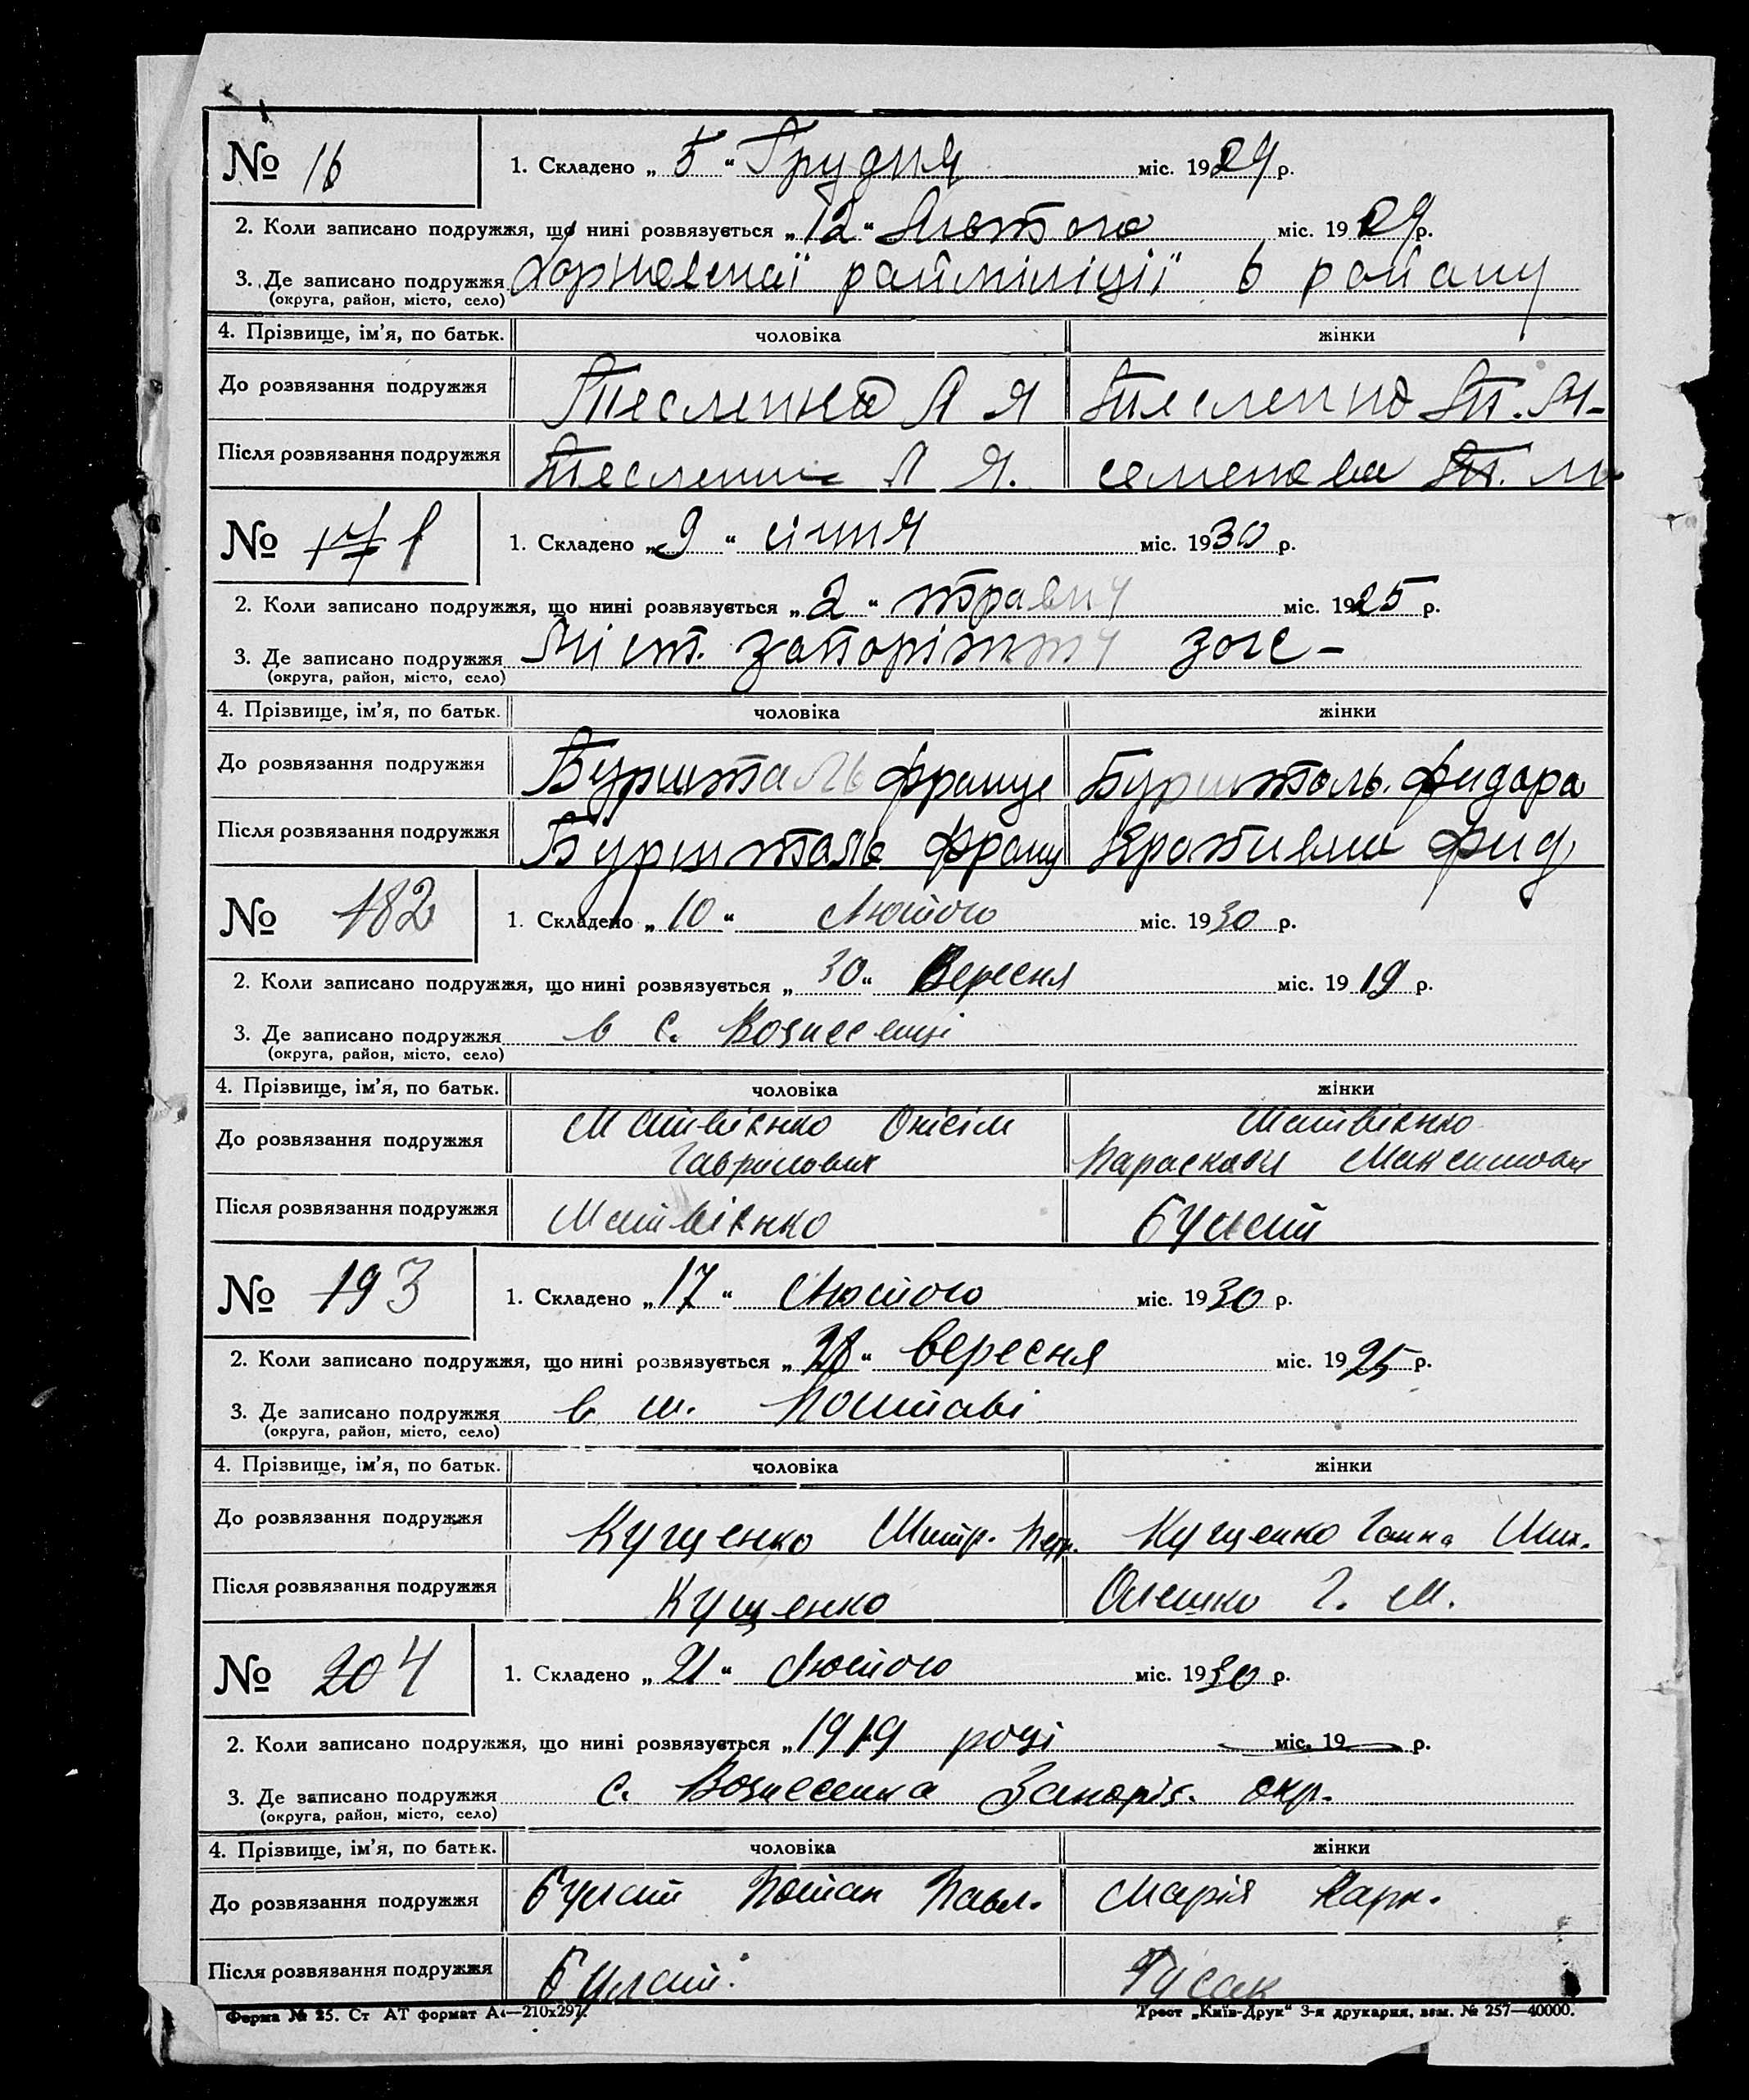 № 16
1. Складено „ 5 “ Грудня міс. 1929 р.
2. Коли записано подружжя, що нині розвязується „ 12 “ Лютого міс. 1929 р.
3. Де записано подружжя райміліції 6 району
(округа, район, місто, село)
4. Прізвище, ім’я, по батьк. чоловіка жінки
До розвязання подружжя Тесленко А Я Тесленко Т. М-
Після розвязання подружжя Тесленко А Я. Семенова Т. М
№ 17 1
1. Складено „ 9 “ січня міс. 1930 р.
2. Коли записано подружжя, що нині розвязується „ 2 “ травня міс. 1925 р.
3. Де записано подружжя Міст. Запоріжжя загс -
(округа, район, місто, село)
4. Прізвище, ім’я, по батьк. чоловіка жінки
До розвязання подружжя Буршталь Франце Буршталь Фидора
Після розвязання подружжя Буршталь Франц Кропивна Фид,
№ 182
1. Складено „ 10 “ Лютого міс. 1930 р.
2. Коли записано подружжя, що нині розвязується „ 30 “ Вересня міс. 1919 р.
3. Де записано подружжя в с. Вознесенці
(округа, район, місто, село)
4. Прізвище, ім’я, по батьк. чоловіка жінки
До розвязання подружжя Матвієнко Онісім Матвієнко
Гаврилович Параскавія Максимовн
Після розвязання подружжя Матвієнко Булат
№ 193
1. Складено „ 17 “ Лютого міс. 1930 р.
2. Коли записано подружжя, що нині розвязується „ 28 “ вересня міс. 1925 р.
3. Де записано подружжя в м. Полтаві
(округа, район, місто, село)
4. Прізвище, ім’я, по батьк. чоловіка жінки
До розвязання подружжя Кущенко Митр. Петр. Кущенко Ганна Мих.
Після розвязання подружжя Кущенко Олешко Г. М.
№ 204
1. Складено „ 21 “ Лютого міс. 1930 р.
2. Коли записано подружжя, що нині розвязується „ 1919 році міс. 19 р.
3. Де записано подружжя с. Вознесенка Запоріз. окр.
(округа, район, місто, село)
4. Прізвище, ім’я, по батьк. чоловіка жінки
До розвязання подружжя Булат Потап Павл. Марія Карп.
Після розвязання подружжя Булат. Гусак
Форма № 25. Ст АТ формат А4—210х297. Трест „Київ-Друк“ 3-я друкарня, зам. № 257—40000.